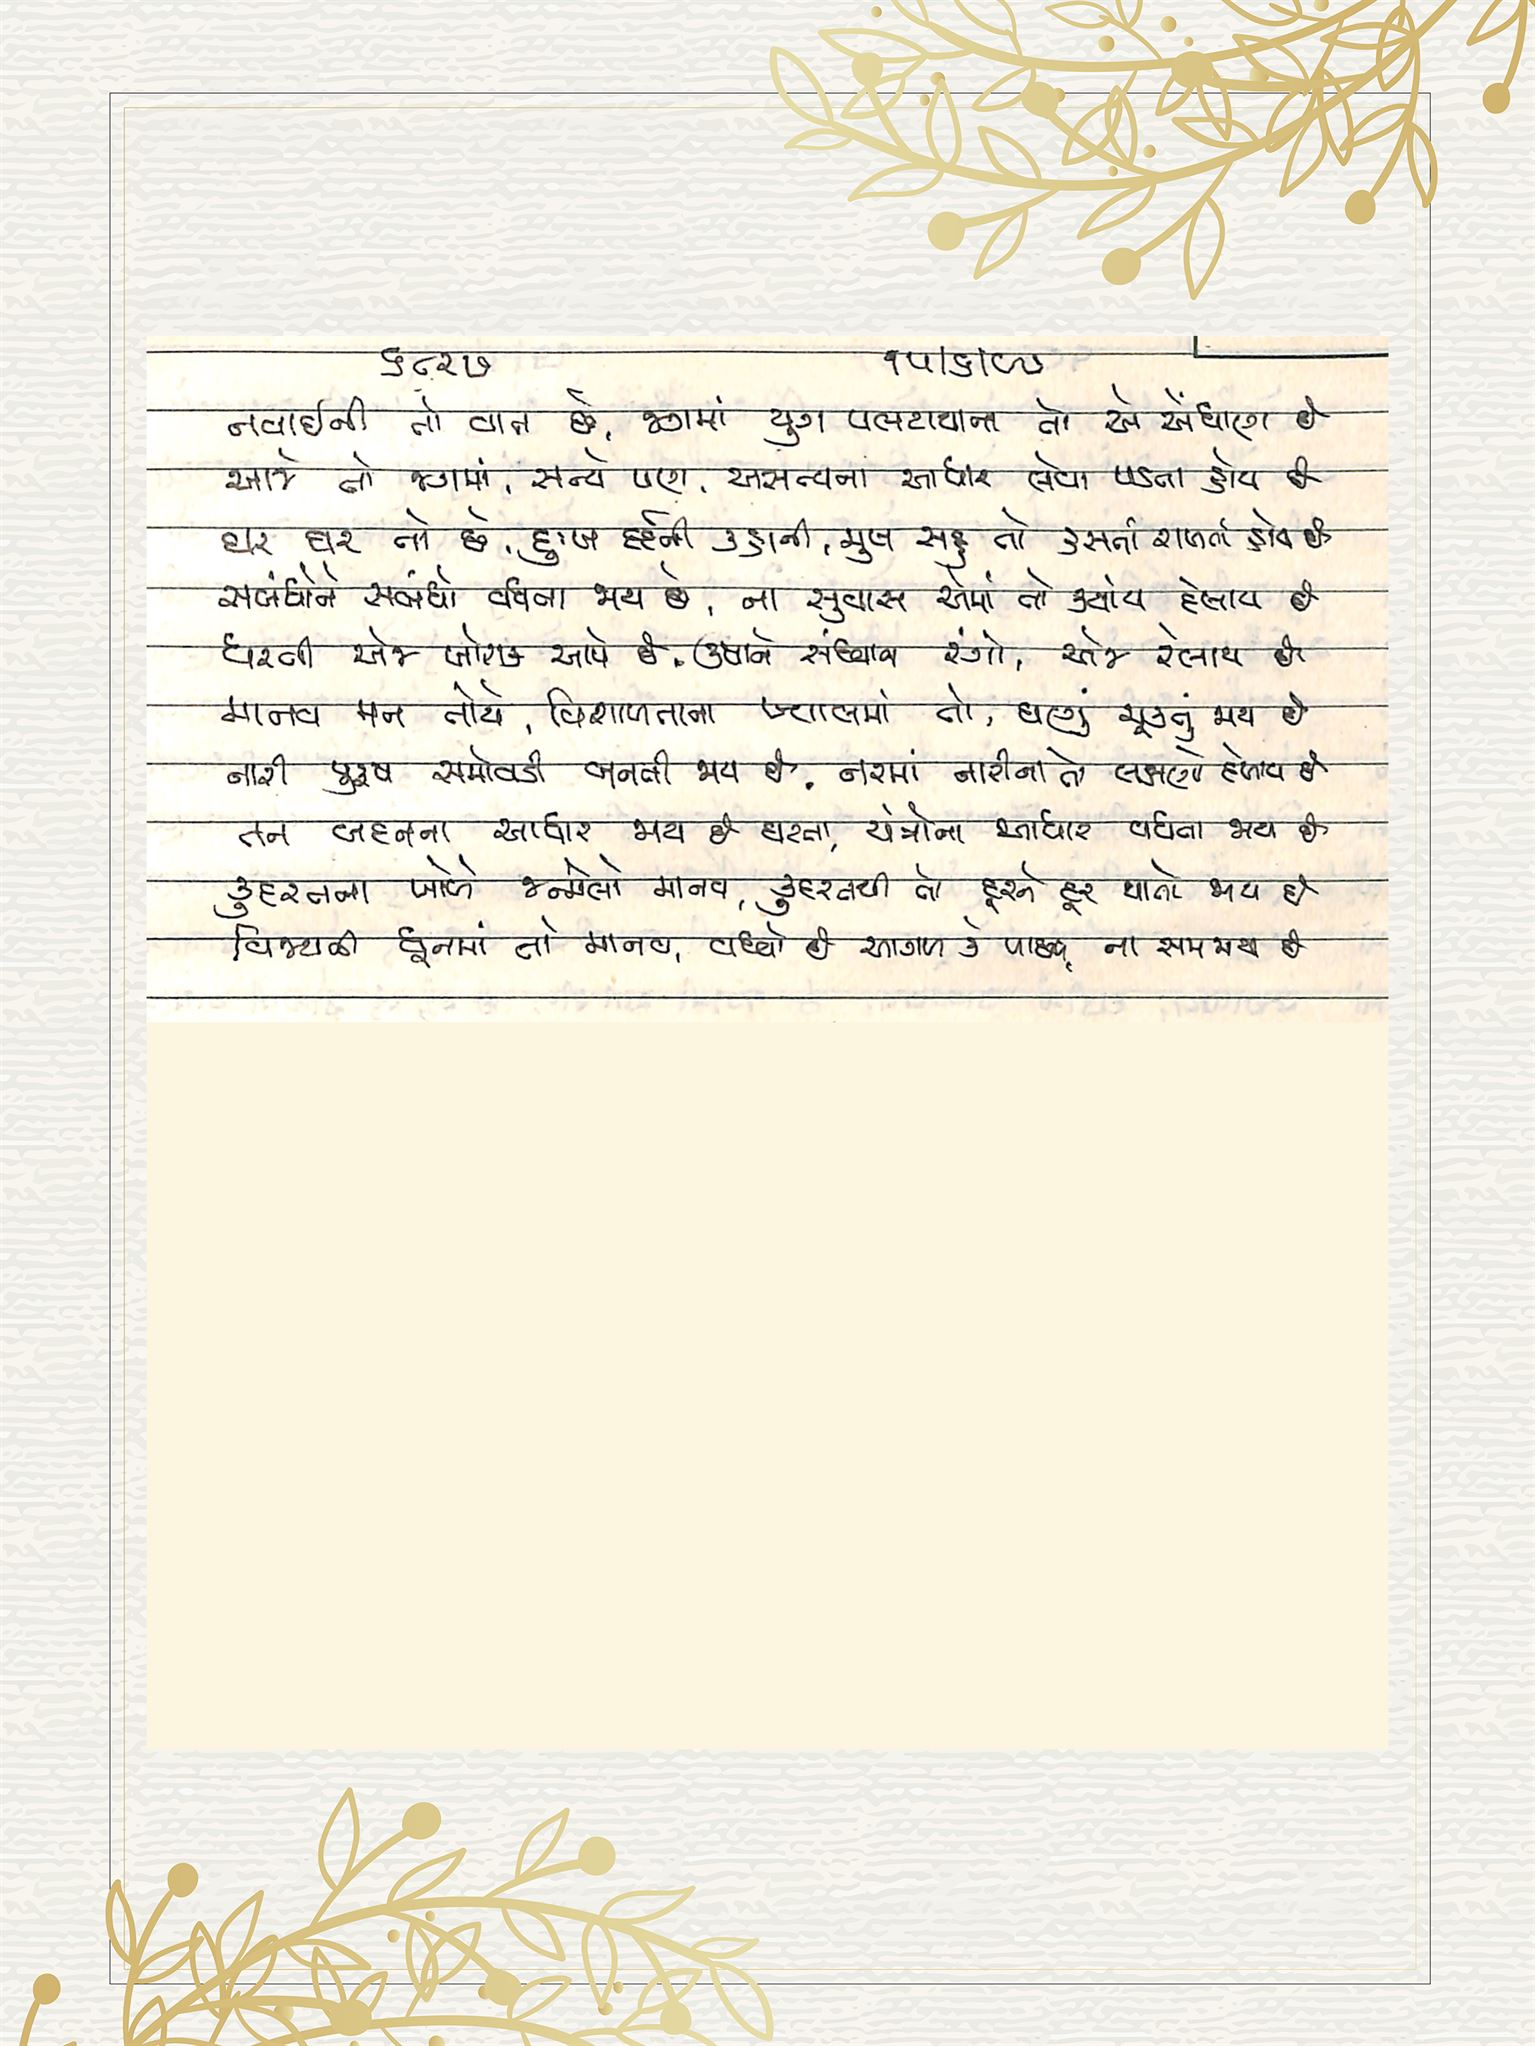 ૬૮૨૭ ૧૫/૬/૯૭
નવાઈની તો વાત છે, જગમાં યુગ પલટાયાના તો એ એંધાણ છે
આજે તો જગમાં, સત્યે પણ, અસત્યના આધાર લેવા પડતા હોય છે
ઘર ઘર નો છે, દુઃખ દર્દની કહાની, મુખ સહુ તો હસતાં રાખતાં હોય છે
સબંધોને સબંધો વધતા જાય છે, ના સુવાસ એમાં તો ક્યાંય દેખાય છે
ધરતી એજ ખોરાક આપે છે, ઉષાને સંધ્યાના રંગો, એજ રેલાય છે
માનવ મન તોયે, વિશાળતાના ખ્યાલમાં તો, ઘણું ચૂકતું જાય છે
નારી પુરુષ સમોવડી બનતી જાય છે, નરમાં નારીના તો લક્ષણો દેખાય છે
તન બદનના આધાર જાય છે ઘટતા, યંત્રોના આધાર વધતા જાય છે
કુદરતના ખોળે જન્મેલો માનવ, કુદરતથી તો દૂરને દૂર થાતો જાય છે
વિજયની ધૂનમાં તો માનવ, વધ્યો છે આગળ કે પાછળ, ના સમજાય છે